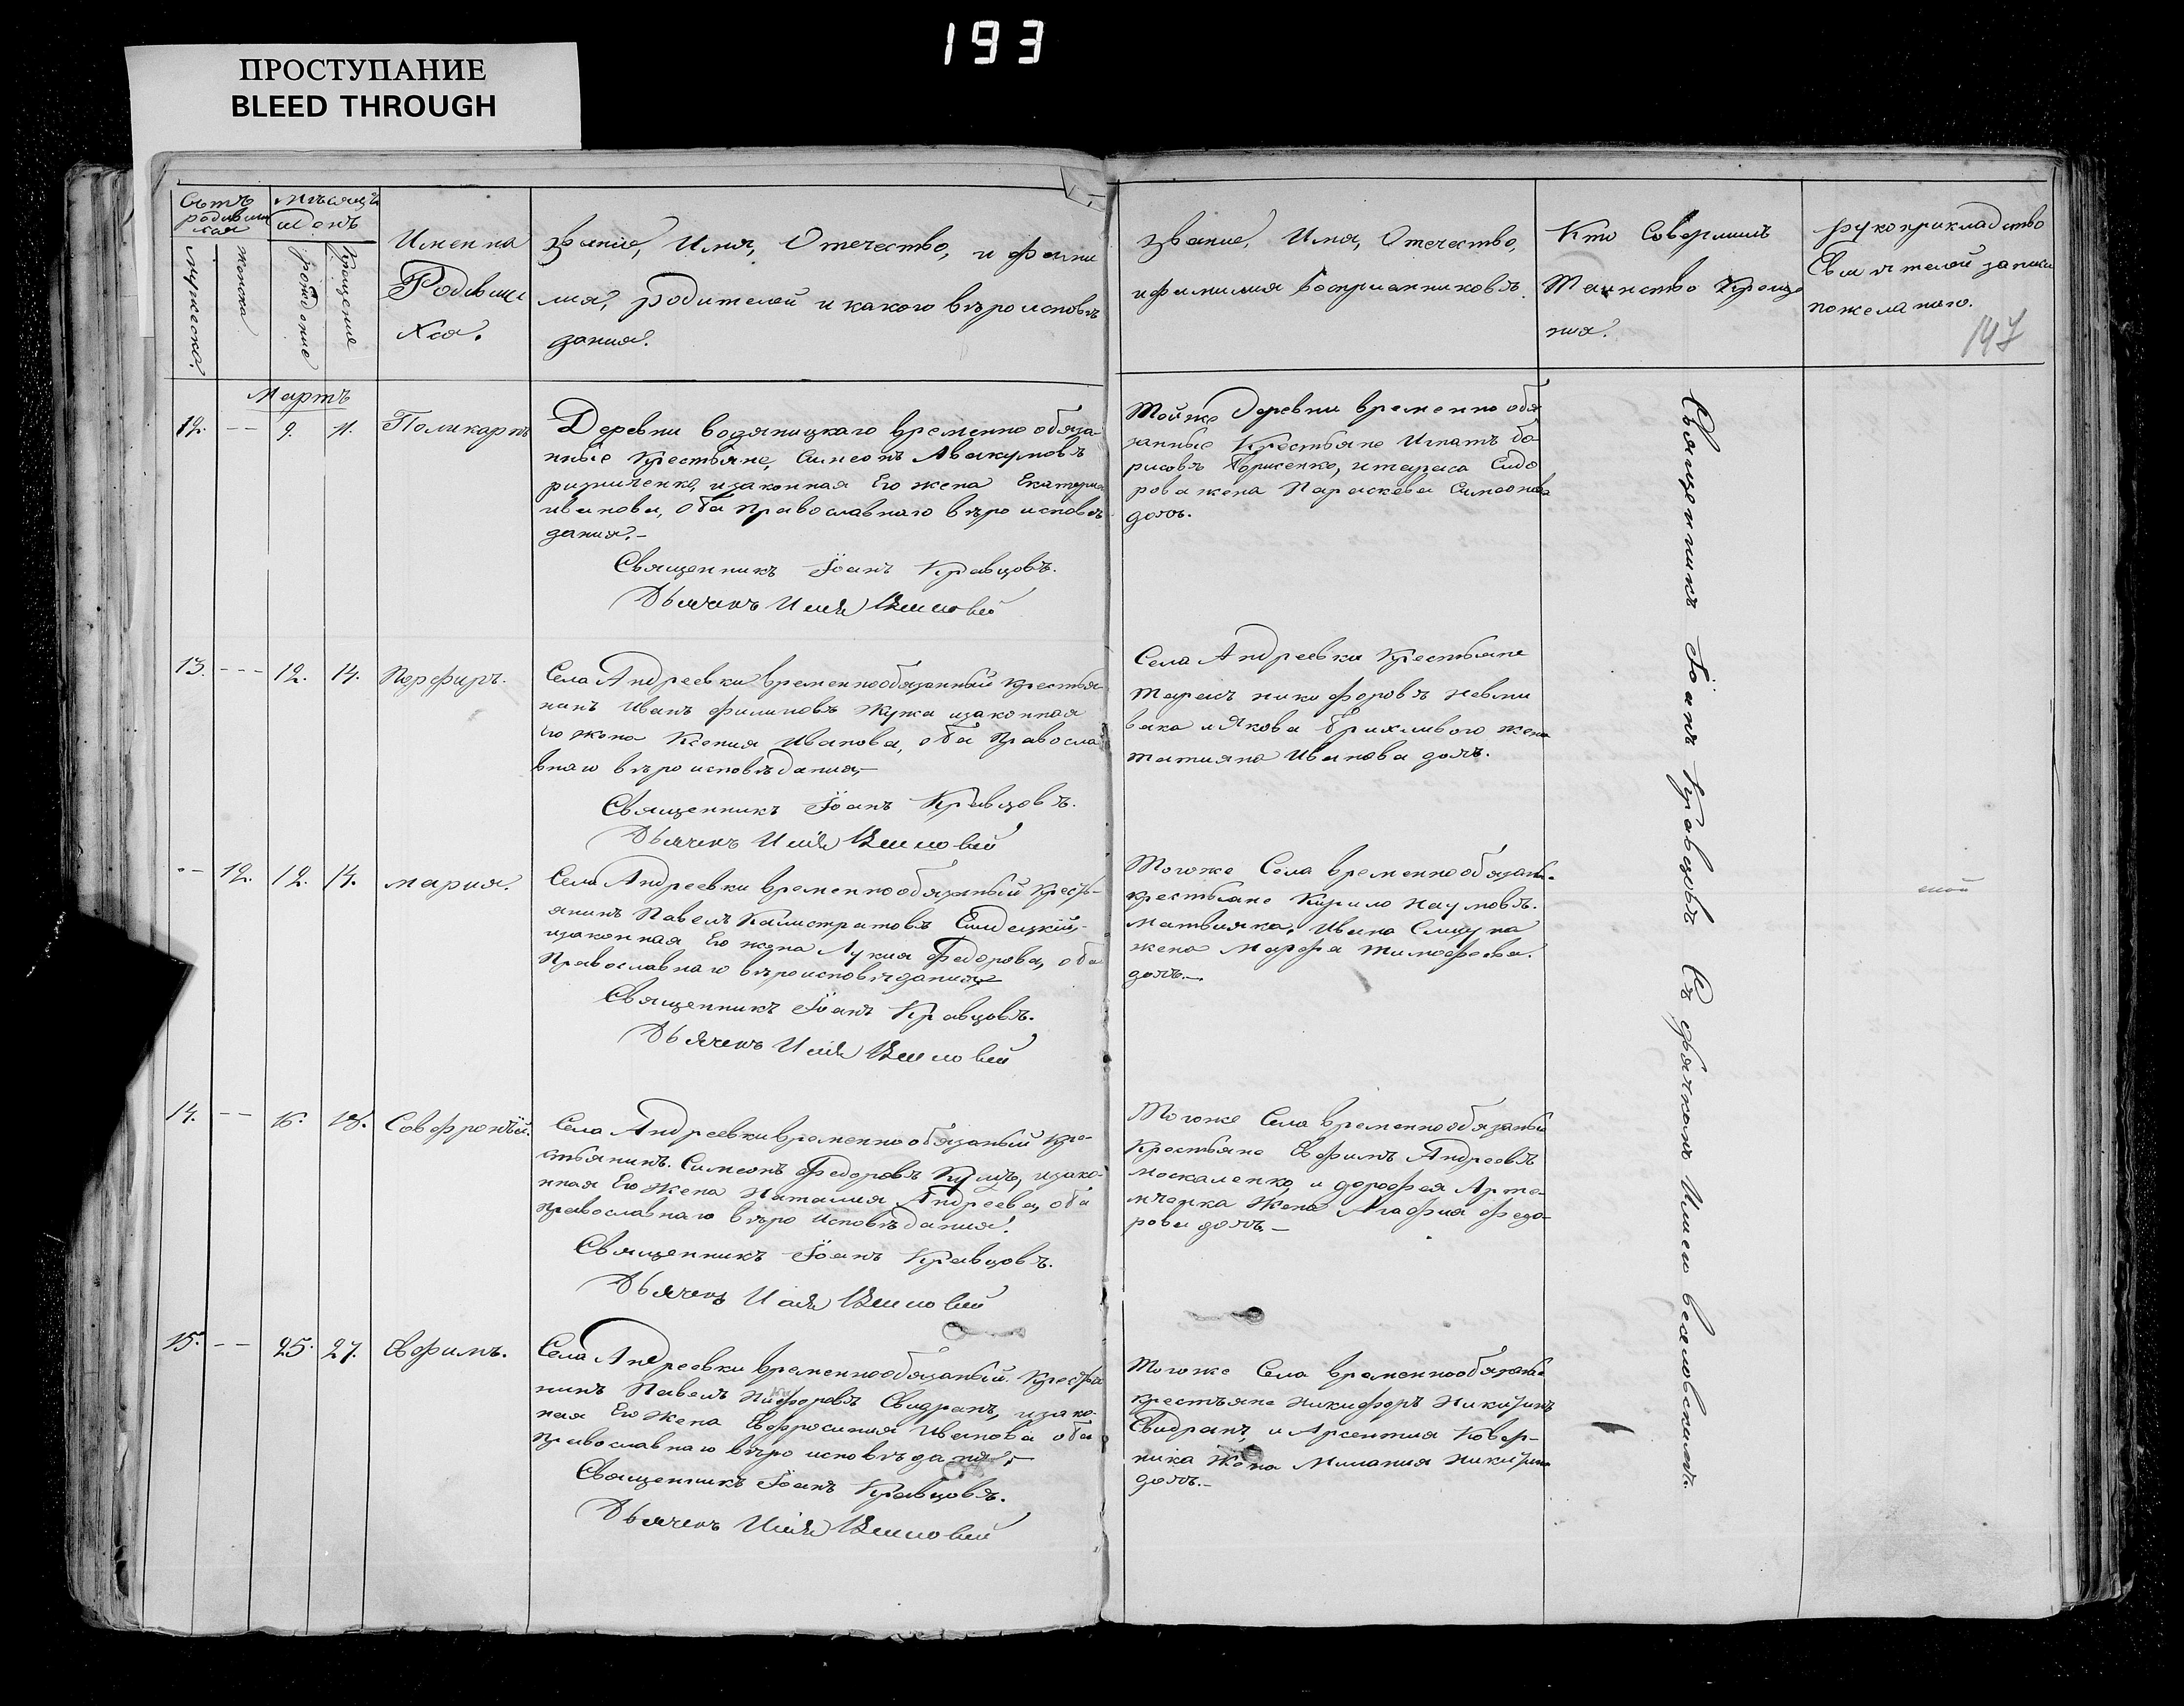 193
ПРОСТУПАНИЕ
BLEED THROUGH
Счетъ
родивши
хся
мужеска.
женска
Мѣсяцъ
и День
рождение
Крещения
Имена
Родивши
хся.
Звание, Имя, Отечество, и фами
лия, родителей и какого вѣроисповѣ
дания.
Звание, Имя, Отечество,
и фамилия восприемниковъ.
Кто Совершилъ
Таинство Креще
ния.
рукоприкладство
Свидѣтелей записи
по желанию.
147
Мартъ
12. -- 9. 11. Поликарпъ
Деревни водяницкаго временно обяза-
нные Крестьяне, Симеонъ Авакумовъ
и законная Его жена Екатерина
иванова, оба православнаго вѣро исповѣ
дания.-
Священникъ Іоанъ Кравцовъ.
Дьячекъ Илія
Тойже Деревни временно обя
занные Крестьяне Игнатъ Бо-
рисовъ Борисенко, и тараса Сидо
рова жена Параскева Симеонова
дочь.
13. --- 12. 14. Порфиръ.
Села Андреевки временнообязанный крестья-
нинъ Иванъ филиповъ Жужа изаконная
его жена Ксения Иванова, оба Правосла
внаго вѣро исповѣдания,-
Священникъ Іоанъ Кравцовъ.
Дьячекъ Илія
Села Андреевки Крестьяне
тарасъ никифоровъ
и Якова жена
татияна Иванова дочь.
-- 12. 12. 14. мария.
Села Андреевки временнообязаный Кресть-
янинъ Павелъ Калистратовъ
изаконная Его жена Лукия Федорова, оба
Православнаго вѣроисповѣдания,
Священникъ Іоанъ Кравцовъ.
Дьячекъ Илія
Тогоже Села временнообязан.
крестьяне Кирило Наумовъ.
Ивана
жена Марфа тимофеева.
дочь.-
14. -- 16. 18. Совфроній.
Села Андреевки временно обязаный Кре-
стьянинъ. Симеонъ Федоровъ изако-
нная Его Жена Наталия Андреева, оба
православнаго вѣро Исповѣдания!
Священникъ Іоанъ Кравцовъ.
Дьячекъ Илія
Тогоже Села временнообязаный
Крестьяне Евфимъ Андреевъ
москаленко, и дорофея Арте-
Жена Агафия федо-
рова дочь-
15. -- 25. 27. Евфимъ.
Села Андреевки временнообязаный. Крестья
нинъ Павелъ Никифоровъ Свидранъ, изако-
ная Его Жена Евфросиния Иванова оба
Православнаго вѣро исповѣдания,-
Священникъ Іоанъ Кравцовъ.
Дьячекъ Илія
Тогоже Села временнообязаные
крестьяне никифоръ никитинъ
Свидранъ, и Арсентия Ковер-
ника Жена Милания никитина
дочь.-
Священникъ Іоанъ Кравцовъ Съ дьячкомъ Илиею веселовскимъ.